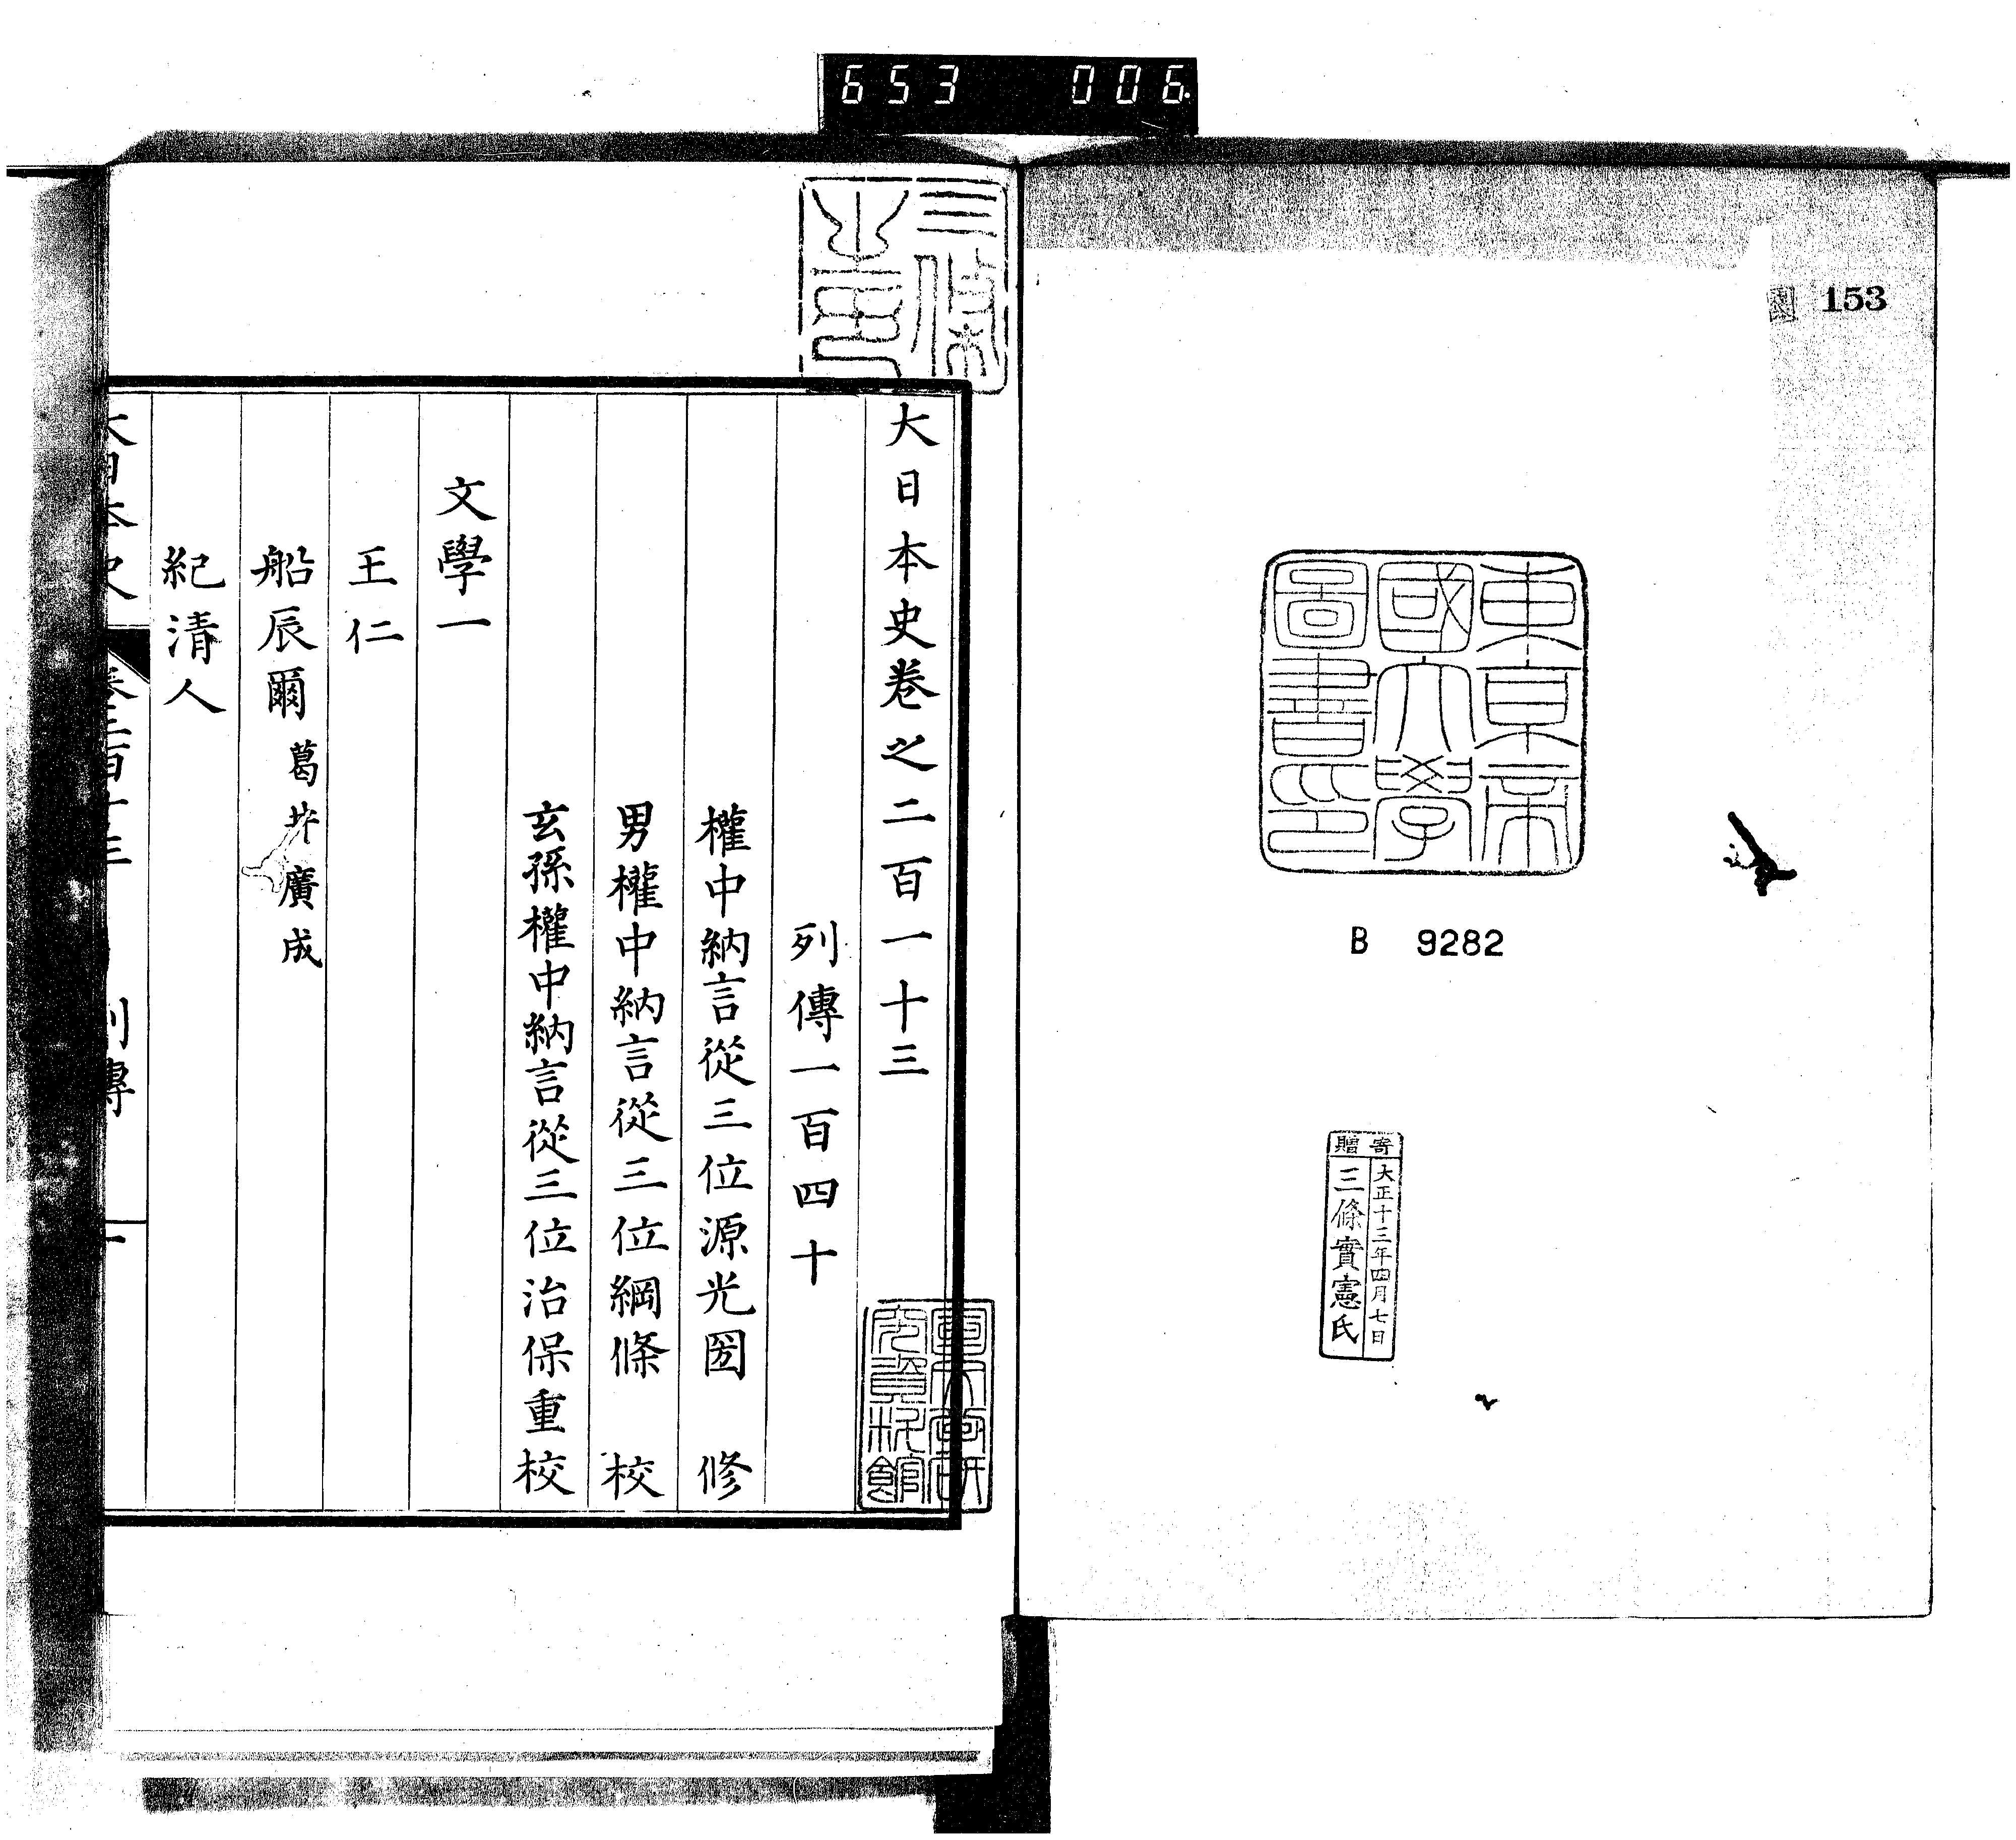 653 006
153
東京帝
國大學
圖書印
B 9282
寄贈
大正十三年四月七日
三條實憲氏
三條
大日本史卷之二百一十三
列傳一百四十
權中納言從三位源光圀 修
男權中納言從三位綱條 校
玄孫權中納言從三位治保重校
文學一
王仁
船辰爾 葛井廣成
紀清人
大日本史 卷二百十三 列傳 一